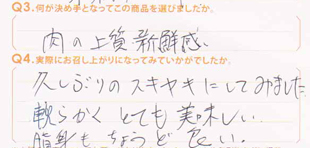 Q3.何が決め手となってこの商品を選びましたか。
肉の上質新鮮感
Q4.実際にお召し上がりになってみていかがでしたか。
久しぶりのスキヤキにしてみました
軟らかくとても美味しい
脂身もちょうど良い。